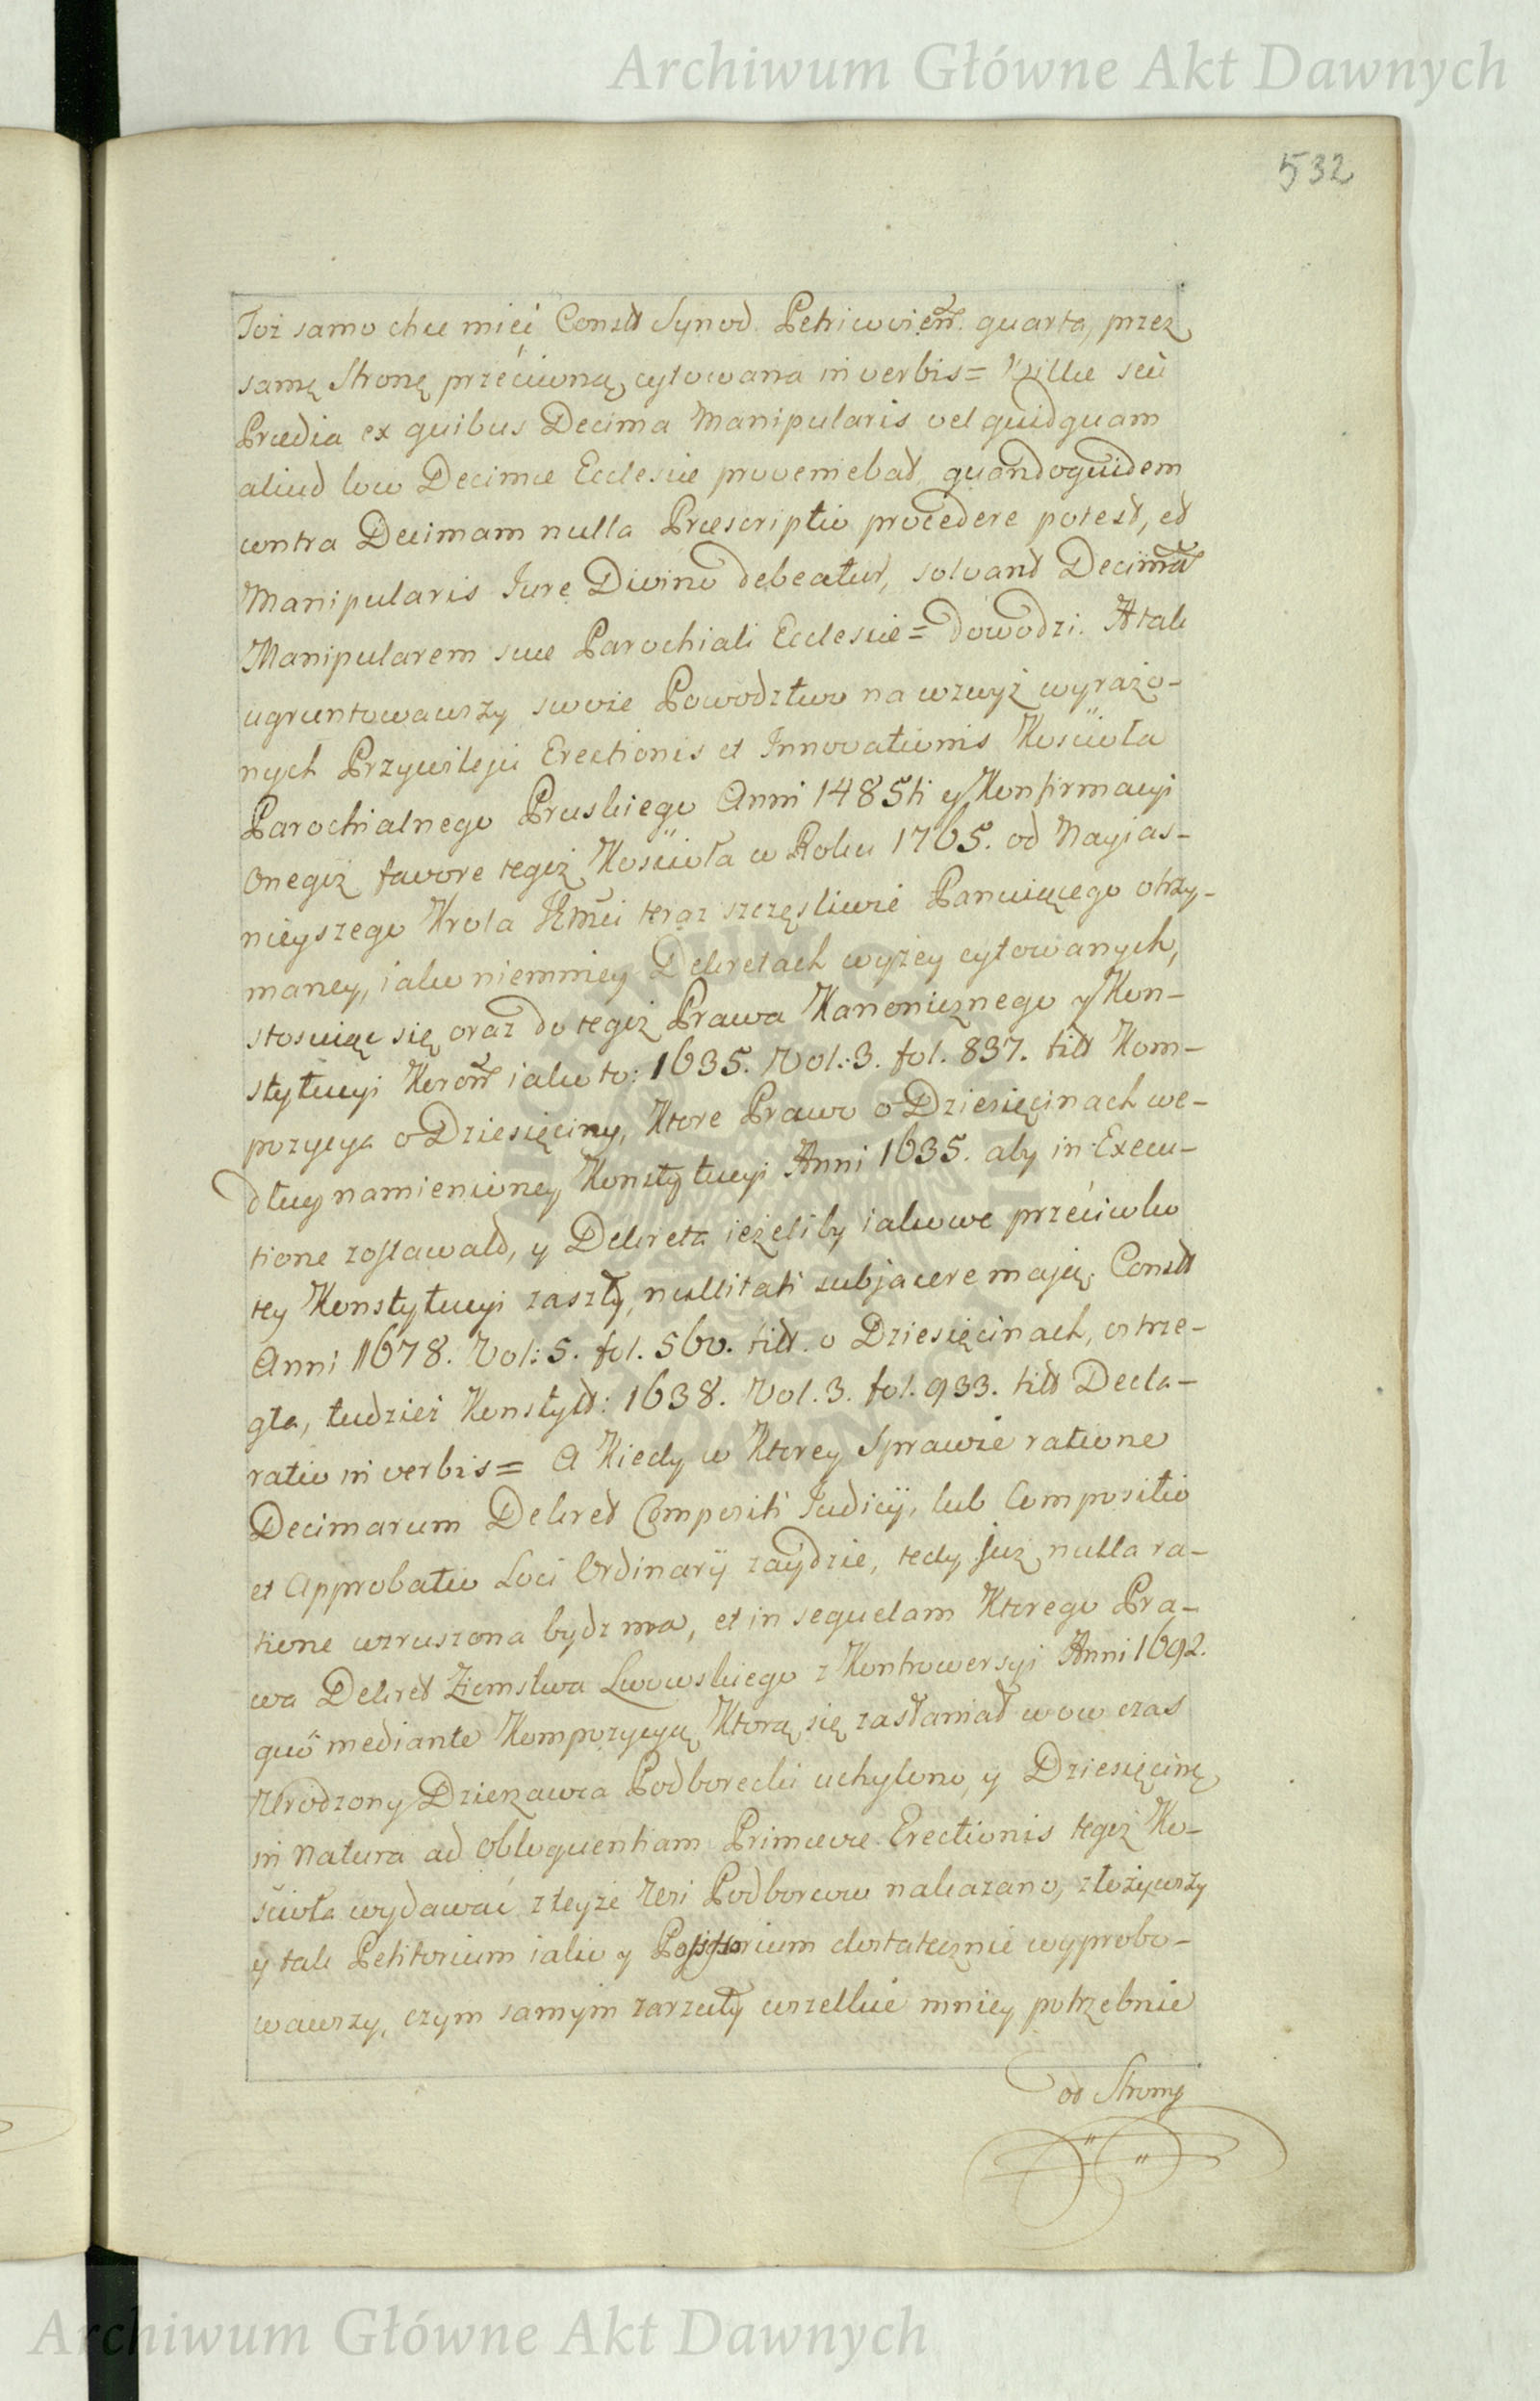 Archiwum Główne Akt Dawnych
532
Toż samo chce mieć Constt Synod. Petricovień. quarta, przez
samę Stronę przeciwną cytowana in verbis = Villæ seu
Prædia ex quibus Decima Manipularis vel quidquam
aliud loco Decimæ Ecclesiæ proveniebat, quandoquidem
contra Decimam nulla Præscriptio procedere potest, et
Manipularis Jure Divino debeatur, solvant Decimam
Manipularem suæ Parochiali Ecclesiæ = dowodzi. A tak
ugruntowawszy swoie Powodztwo na wzwyż wyrażo-
nych Przywileju Erectionis et Innovationis Kościoła
Parochialnego Pruskiego Anni 1485ti y Konfirmacyi
Onegoż favore tegoż Kościoła w Roku 1765. od Nayias-
nieyszego Krola Jmci teraz szczęsliwie Panuiącego otrzy-
maney, iako niemniey Dekretach wyżey cytowanych,
stosuiąc się oraz do tegoż Prawa Kanonicznego y Kon-
stytucyi Koroń iako to: 1635. Vol: 3. fol. 837. titt Kom-
pozycya o Dziesięciny, Ktore Prawo o Dziesięcinach we-
dług namienioney Konstytucyi Anni 1635. aby in Execu-
tione zostawało, y Dekreta ieżeliby iakowe przeciwko
tey Konstytucyi zaszły, nullitati subjacere maią. Constt
Anni 1678. Vol: 5. fol. 560. titt. o Dziesięcinach, ostrze-
gła, tudzież Konstytt: 1638. Vol. 3. fol. 933. titt Decla-
ratio in verbis = A Kiedy w Ktorey Sprawie ratione
Decimarum Dekret Compositi Judicij, lub Compositio
et Approbatio Loci Ordinarij zaydzie, tedy juz nulla ra-
tione wzruszona bydz ma, et in sequelam Ktorego Pra-
wa Dekret Ziemstwa Lwowskiego z Kontrowersyi Anni 1692.
quo mediante Kompozycyą Ktorą się zasłaniał wow czas
Urodzony Dzierzawca Podborecki uchylono, y Dziesięcinę
in Natura ad Obloquentiam Primævæ Erectionis tegoż Ko-
ścioła wydawać z teyże Wsi Podborcow nakazano, złożywszy
y tak Petitorium iako y Possessorium dostatecznie wyprobo-
wawszy, czym samym zarzuty wszelkie mniey potrzebnie
od Strony
Archiwum Główne Akt Dawnych